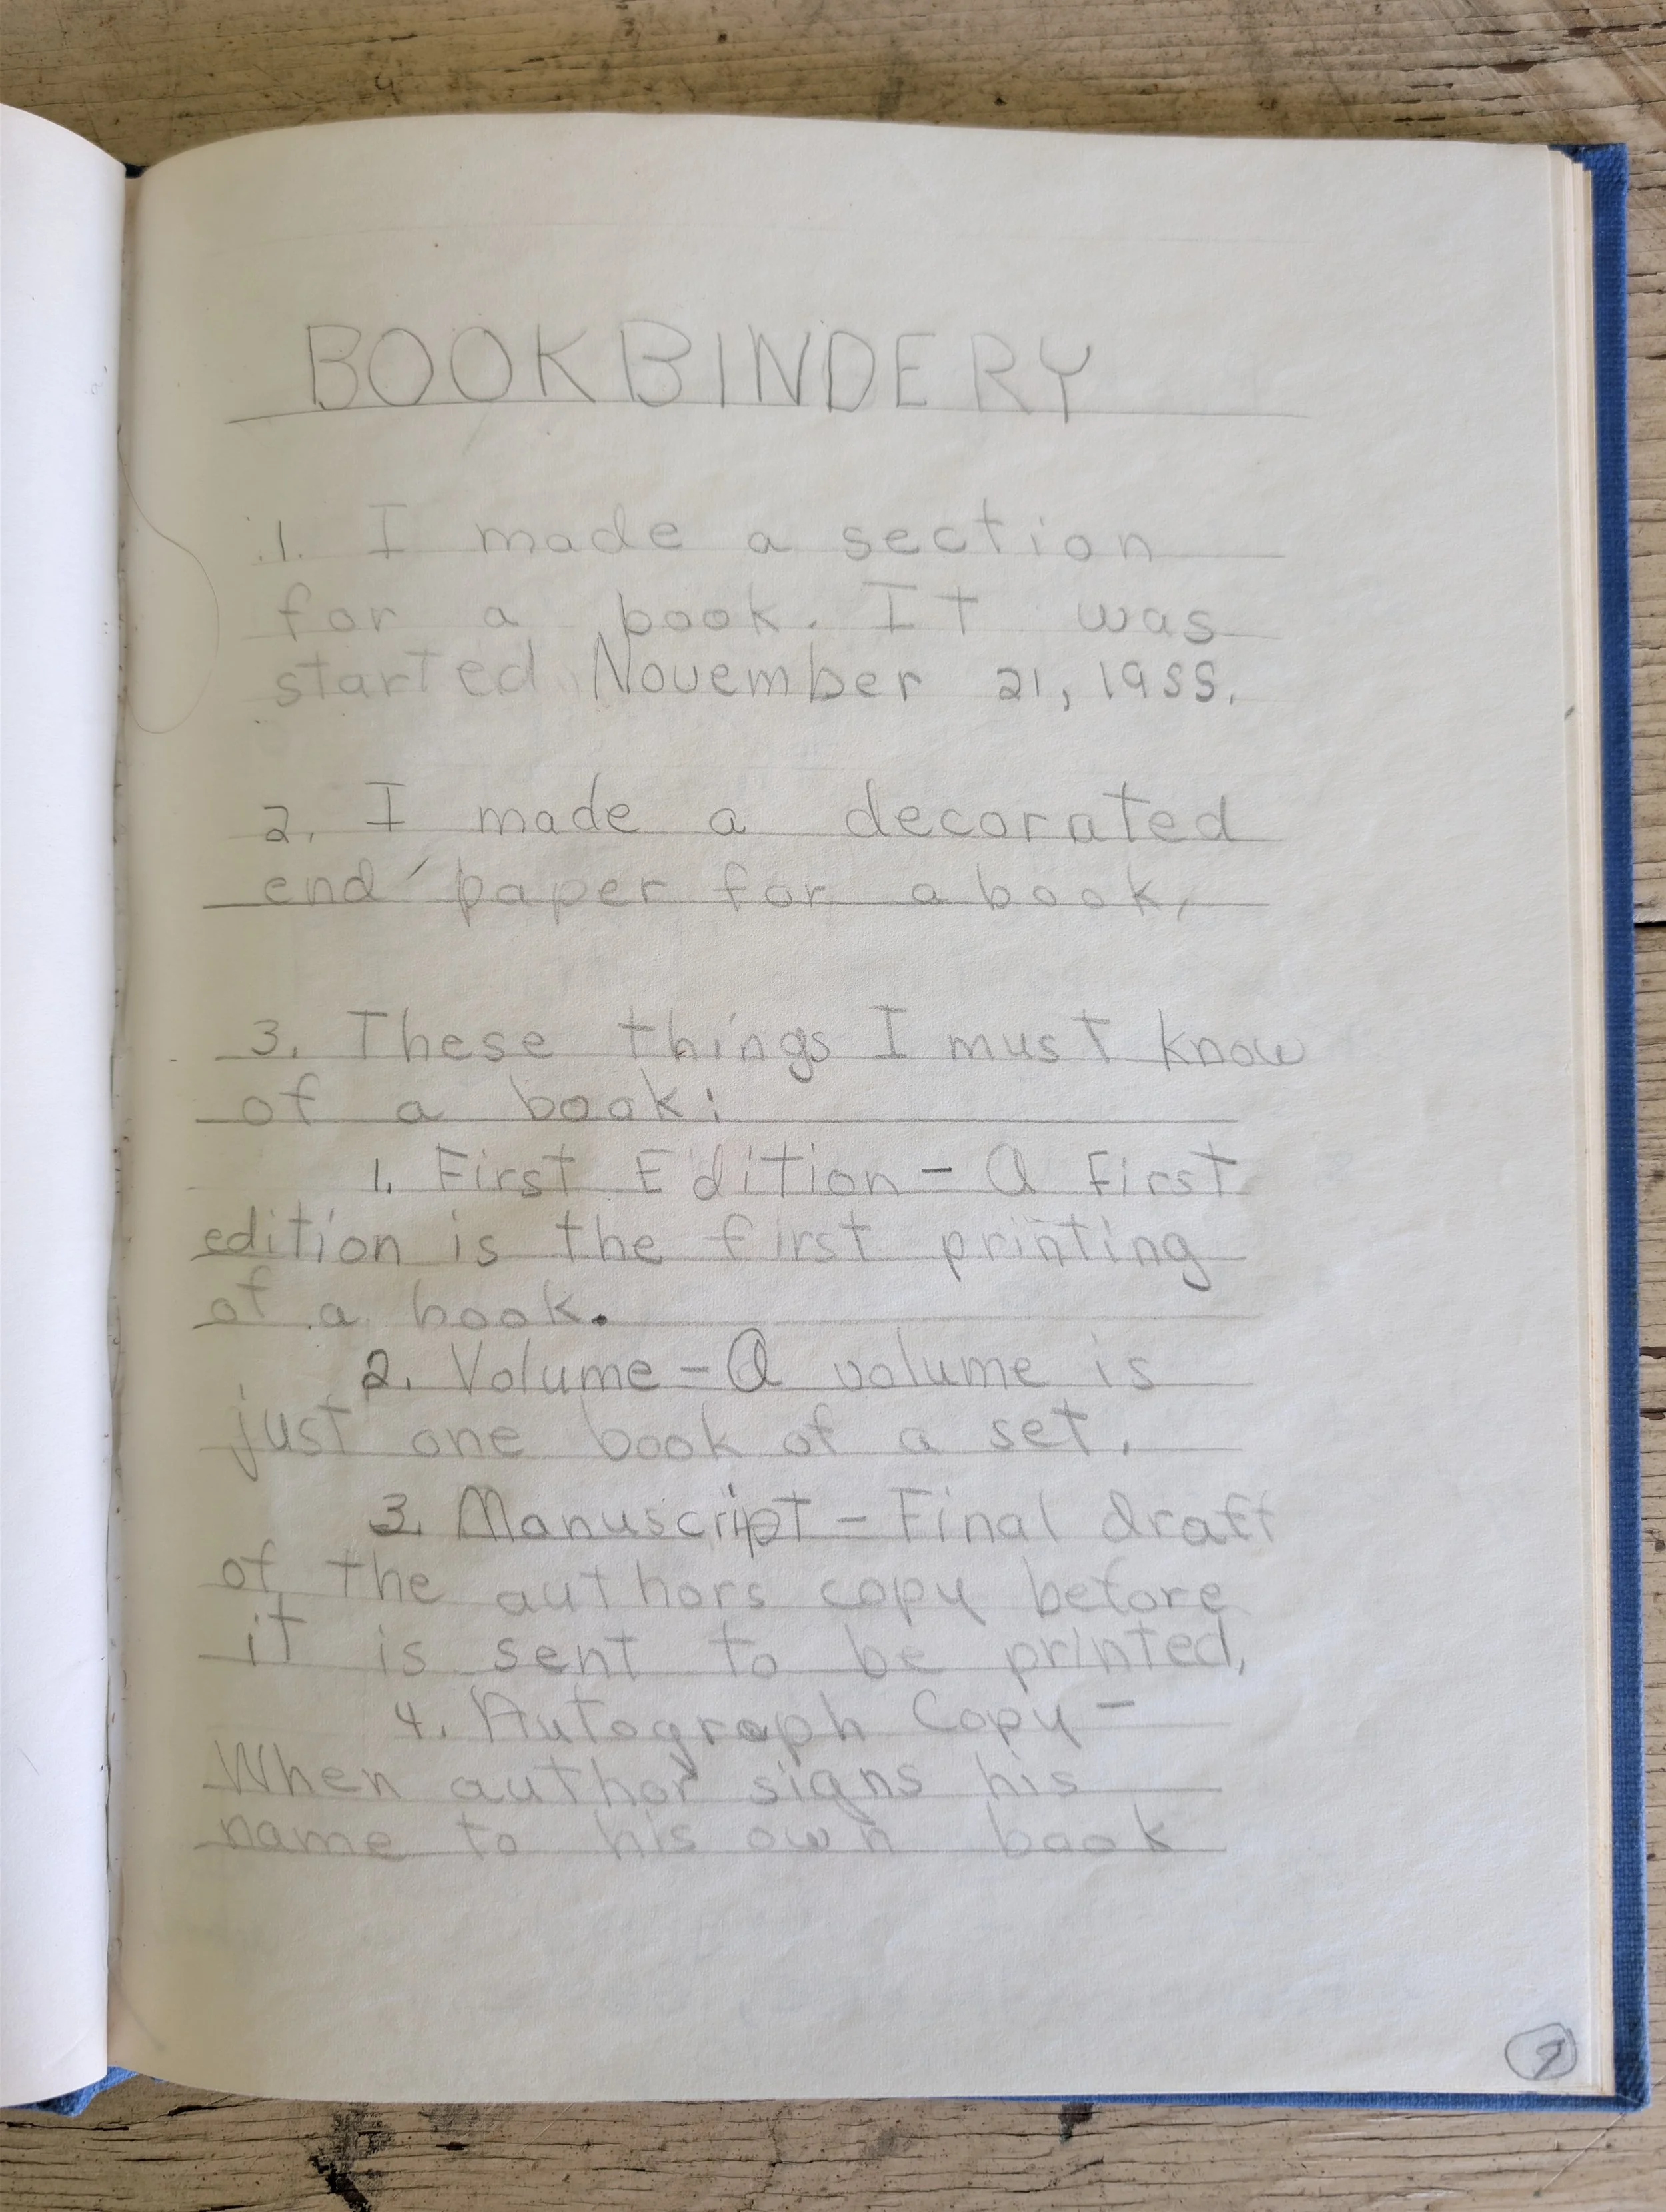 BOOKBINDERY
1. I made a section
for a book. IT was
started November 21, 1955.
2. I made a decorated
end paper for a book.
3. These things I must know
of a book:
1. First Edition - A first
edition is the first printing
of a book.
2. Volume - A volume is
just one book of a set.
3. Manuscript - Final draft
of the authors copy before
it is sent to be printed,
4. Autograph Copy -
When author signs his
name to his own book
7